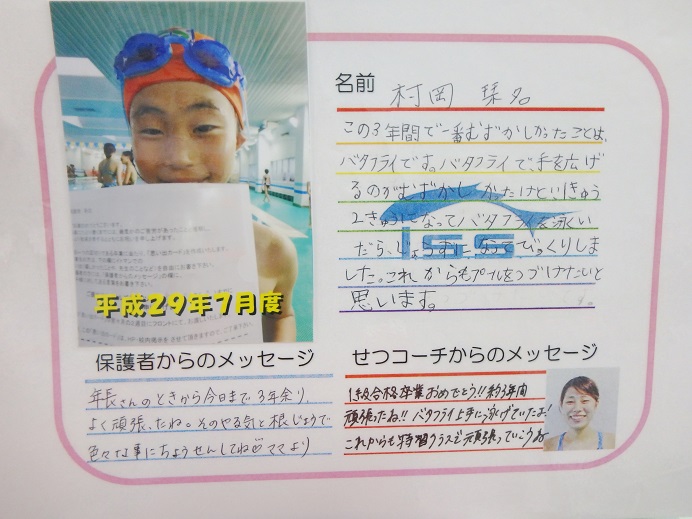 平成29年7月度
名前 村岡
この3年間で一番むずかしかったことは、
バタフライです。バタフライで、手を広げ
るのがむずかしかったけど、いきゅう
2きゅうになってバタフライを泳い
だら、じょうずになっててびっくりしま
した。これからもプールをつづけたいと
思います。
ISS
保護者からのメッセージ
年長さんのときから今日まで3年余り、
よく頑張ったね。そのやる気と根じょうで
色々な事にちょうせんしてね ママより
せつコーチからのメッセージ
1級合格卒業おめでとう!!約3年間
頑張ったね!! バタフライ上手に泳げていたよ!
これからも特習クラスで頑張っていこうね